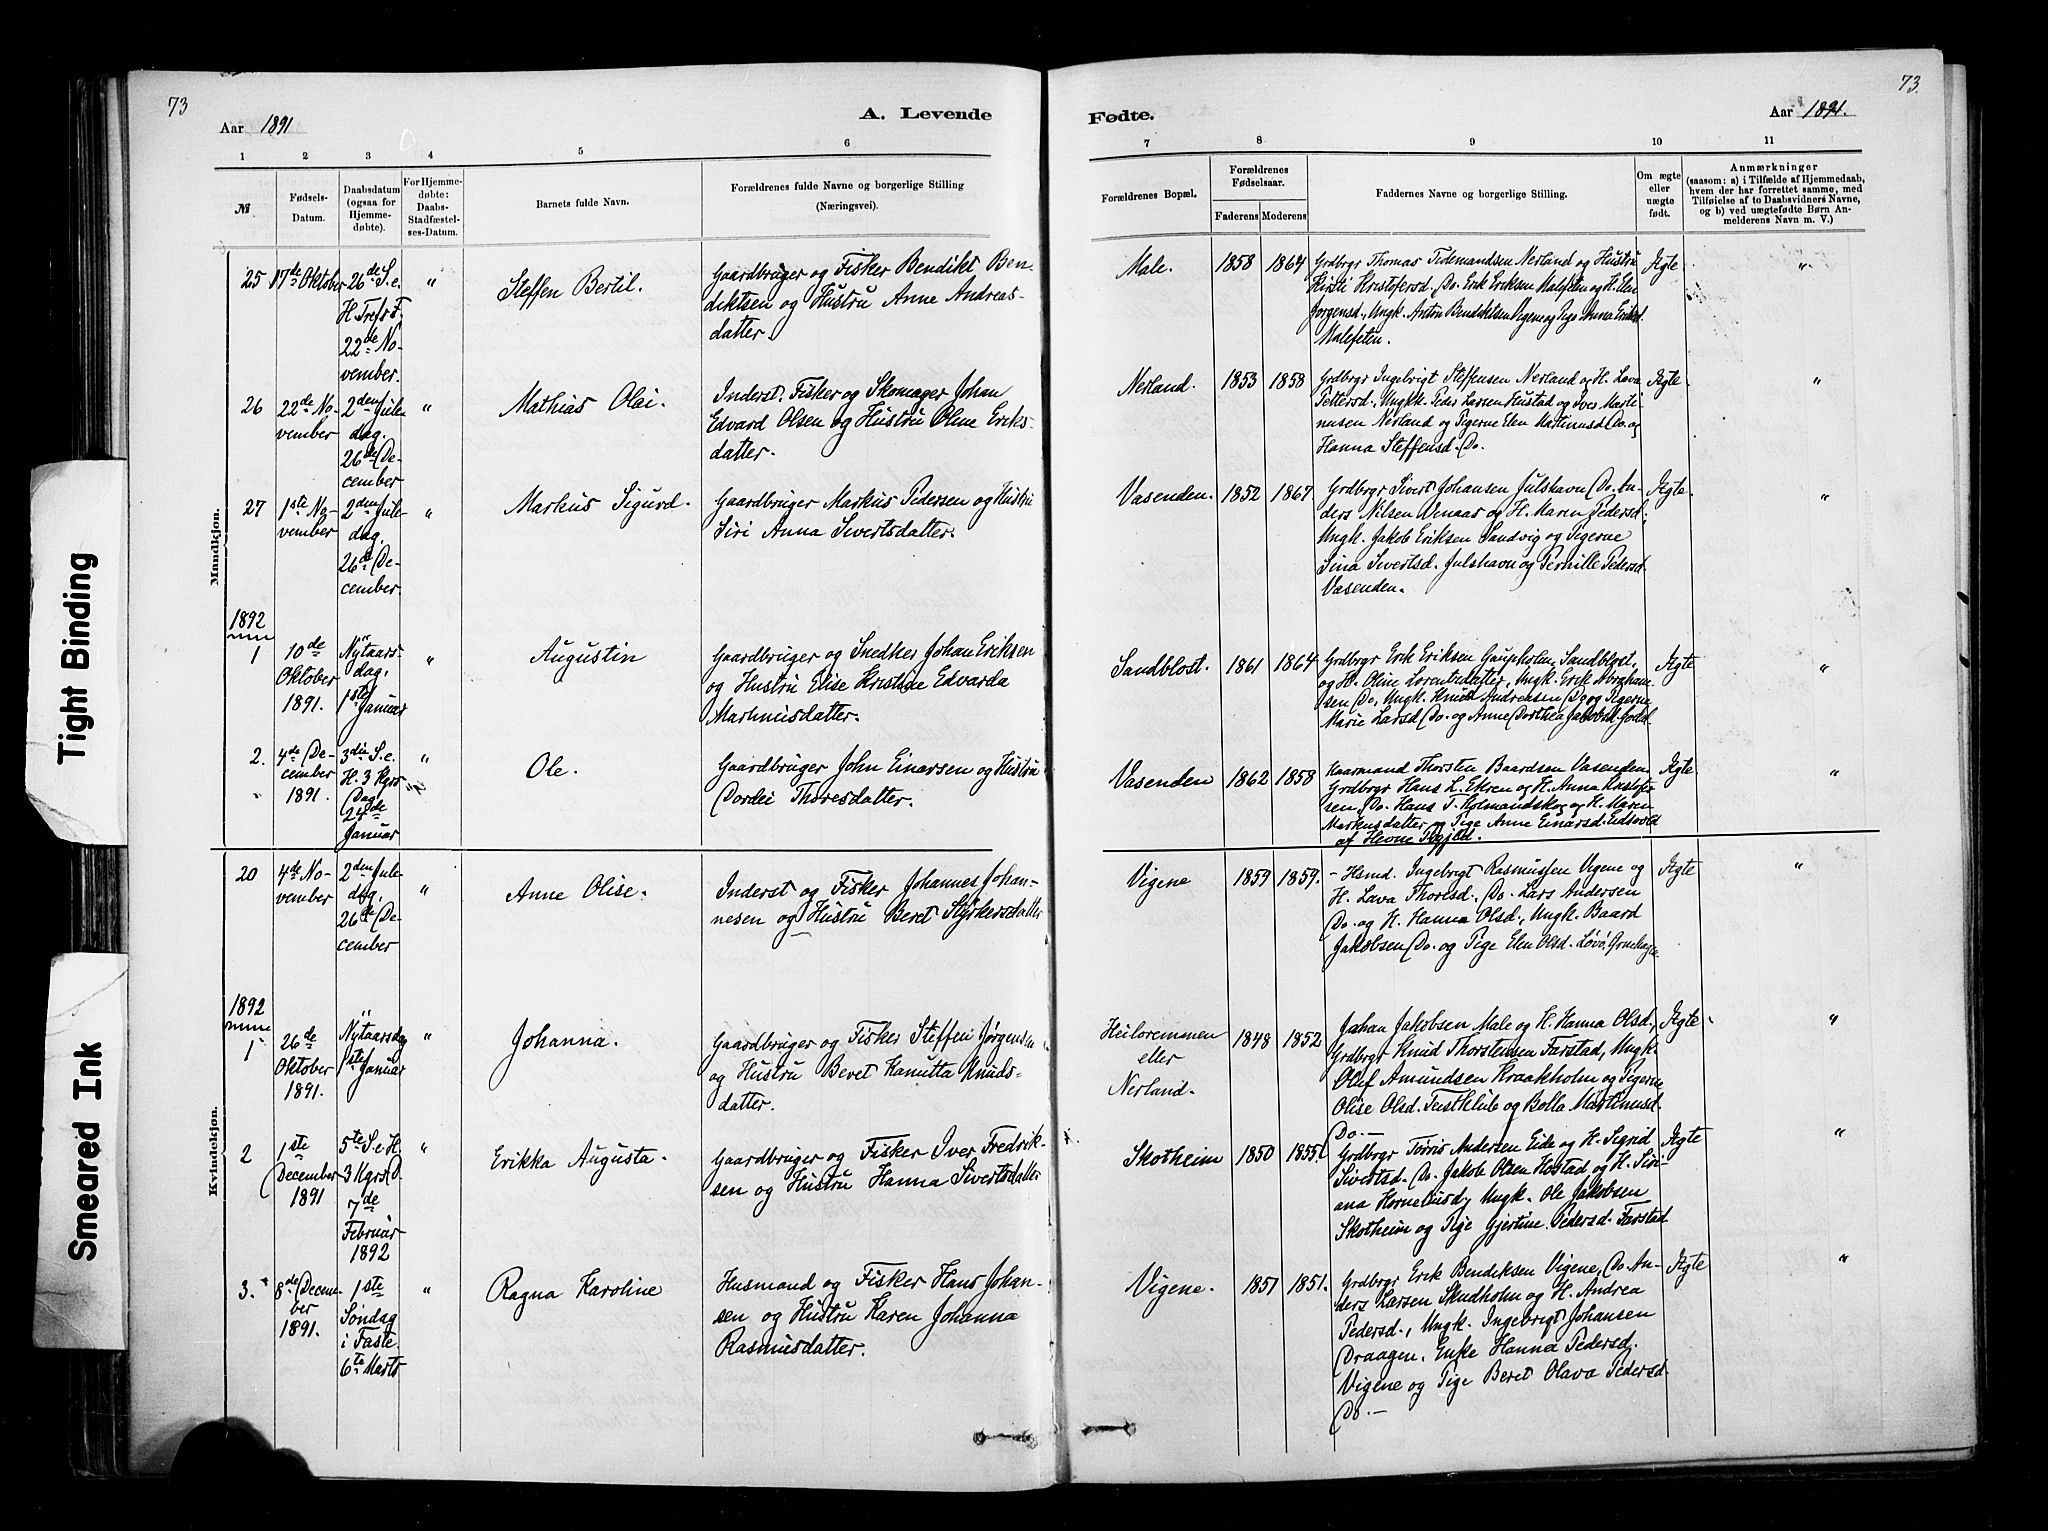 73
Aar 1891
A. Levende
1 2 3 4 5 6
№
Fødsels-
Datum.
Daabsdatum
(ogsaa for
Hjemme-
døbte).
For Hjemme-
døbte:
Daabs-
Stadfæstel-
ses-Datum.
Barnets fulde Navn.
Forældrenes fulde Navne og borgerlige Stilling
(Næringsvei).
Mandkjøn.
25
17de Oktober
26de S. e.
H. Tref. F.
22de No-
vember.
"
Steffen Bertil.
Gaardbruger og Fisker Bendikt Ben-
diktsen og Hustru Anne Andreas-
datter.
26
22de No-
vember
2den Jule-
dag.
26de De-
cember
"
Mathias Olai.
Inderst, Fisker og Skomager Johan
Edvard Olsen og Hustru Oline Eriks-
datter.
27
1ste No-
vember
2den Jule-
dag,
26de De-
cember
"
Markus Sigurd.
Gaardbruger Markus Pedersen og Hustru
Siri Anna Sivertsdatter.
1892
1
10de
Oktober
1891.
Nytaars-
dag,
1ste Januar
"
Augustin
Gaardbruger og Snedker Johan Eriksen
og Hustru Elise Kristine Edvarda
Martinusdatter.
2.
4de De-
cember
1891.
3die S. e.
H. 3 Kgrs
Dag
24de
Januar
"
Ole.
Gaardbruger John Einarsen og Hustru
Dordei Thoresdatter.
Kvindekjøn.
20
4de No-
vember
2den Jule-
dag.
26de De-
cember
"
Anne Olise.
Inderst og Fisker Johannes Johan-
nesen og Hustru Beret Styrkersdatter
1892
1
26de
Oktober
1891.
Nytaarsdag
1ste Januar
"
Johanna.
Gaardbruger og Fisker Steffen Jørgensen
og Hustru Beret Kanutta Knuds-
datter.
2
1ste
December
1891
5te S. e. H.
3 Kgrs D.
7de
Februar
1892
"
Erikka Augusta.
Gaardbruger og Fisker Iver Fredrik-
sen og Hustru Hanna Sivertsdatter
3.
8de Decem-
ber
1891.
1ste
Søndag
i Faste.
6te Marts
"
Ragna Karoline
Husmand og Fisker Hans Johan-
sen og Hustru Karen Johanna
Rasmusdatter.
73.
Fødte.
Aar 1891.
7 8 9 10 11
Forældrenes Bopæl.
Forældrenes
Fødselsaar.
Faderens Moderens
Faddernes Navne og borgerlige Stilling.
Om ægte
eller
uægte
født.
Anmærkninger
(saasom: a) i Tilfælde af Hjemmedaab,
hvem der har forrettet samme, med
Tilføielse af to Daabsvidners Navne,
og b) ved uægtefødte Børn An-
melderens Navn m. V.)
Male. 1858 1864
Grdbrgr Thomas Tidemandsen Nerland og Hustru
Kirsti Kristofersd. Do. Erik Eriksen Malefeten og H. Elen
Jørgensd., Ungk. Anton Bendiktsen Vigene og Pige Anna Eriksd.
Malefeten.
Ægte "
Nerland. 1853 1858
Grdbrgr Ingebrigt Steffensen Nerland og H. Lava
Pettersd., Ungk. Peder Larsen Hustad og Iver Marti-
nusen Nerland og Pigerne Elen Martinusd. Do. og
Hanna Steffensd. Do.
Ægte "
Vasenden. 1852 1867
Grdbrgr Sivert Johansen Julshavn Do. An-
ders Nilsen Venaas og H. Maren Pedersd.
Ungk. Jakob Eriksen Sandvig og Pigerne
Sina Sivertsd. Julshavn og Pernille Pedersd.
Vasenden.
Ægte "
Sandblost. 1861 1864
Grdbrgr Erik Eriksen Gaupholm, Sandblost,
og H. Oline Lorentzdatter, Ungk. Erik Abraham-
sen Do, Ungk. Knud Andreasen Do og Pigerne
Marie Larsd. Do. og Anne Dorthea Jakobsd.
Ægte "
Vasenden 1862 1858
Kaarmand Thorsten Baardsen Vasenden
Grdbrgr Hans L. Ekren og H. Anna
Do. Hans T. Holmandskog og H. Maren
Markusdatter og Pige Anne Einarsd. Eidsvold
af Hevne
Ægte "
Vigene 1859 1859.
Hsmd. Ingebrigt Rasmussen Vigene og
H. Lava Thoresd. Do. Lars Andersen
Do. og H. Hanna Olsd., Ungk. Baard
Jakobsen Do. og Pige Elen Olsd. Løvø,
Ægte "
Heiloremmen
eller
Nerland.
1848 1852
Johan Jakobsen Male og H. Hanna Olsd.,
Grdbrgr Knud Thorstensen Farstad, Ungk.
Oluf Amundsen Kraakholm og Pigerne
Olise Olsd. Teistklub og Bolla Martinusd.
Do.—
Ægte. "
Skotheim 1850 1855.
Grdbrgr Tøris Andersen Eide og H. Sigrid
Sivertsd. Do. Jakob Olsen Hostad og H. Siri-
ana Korneliusd, Ungk. Ole Jakobsen
Skotheim og Pige Gjertine Pedersd. Farstad
Ægte "
Vigene. 1851 1851.
Grdbrgr Erik Bendiksen Vigene, Do. An-
ders Larsen Skudholm og H. Andrea
Pedersd., Ungk. Ingebrigt Johansen
Draagen, Enke Hanna Pedersd.
Vigene og Pige Beret Olava Pedersd.
Do.—
Ægte "
Tight Binding
Smeared Ink